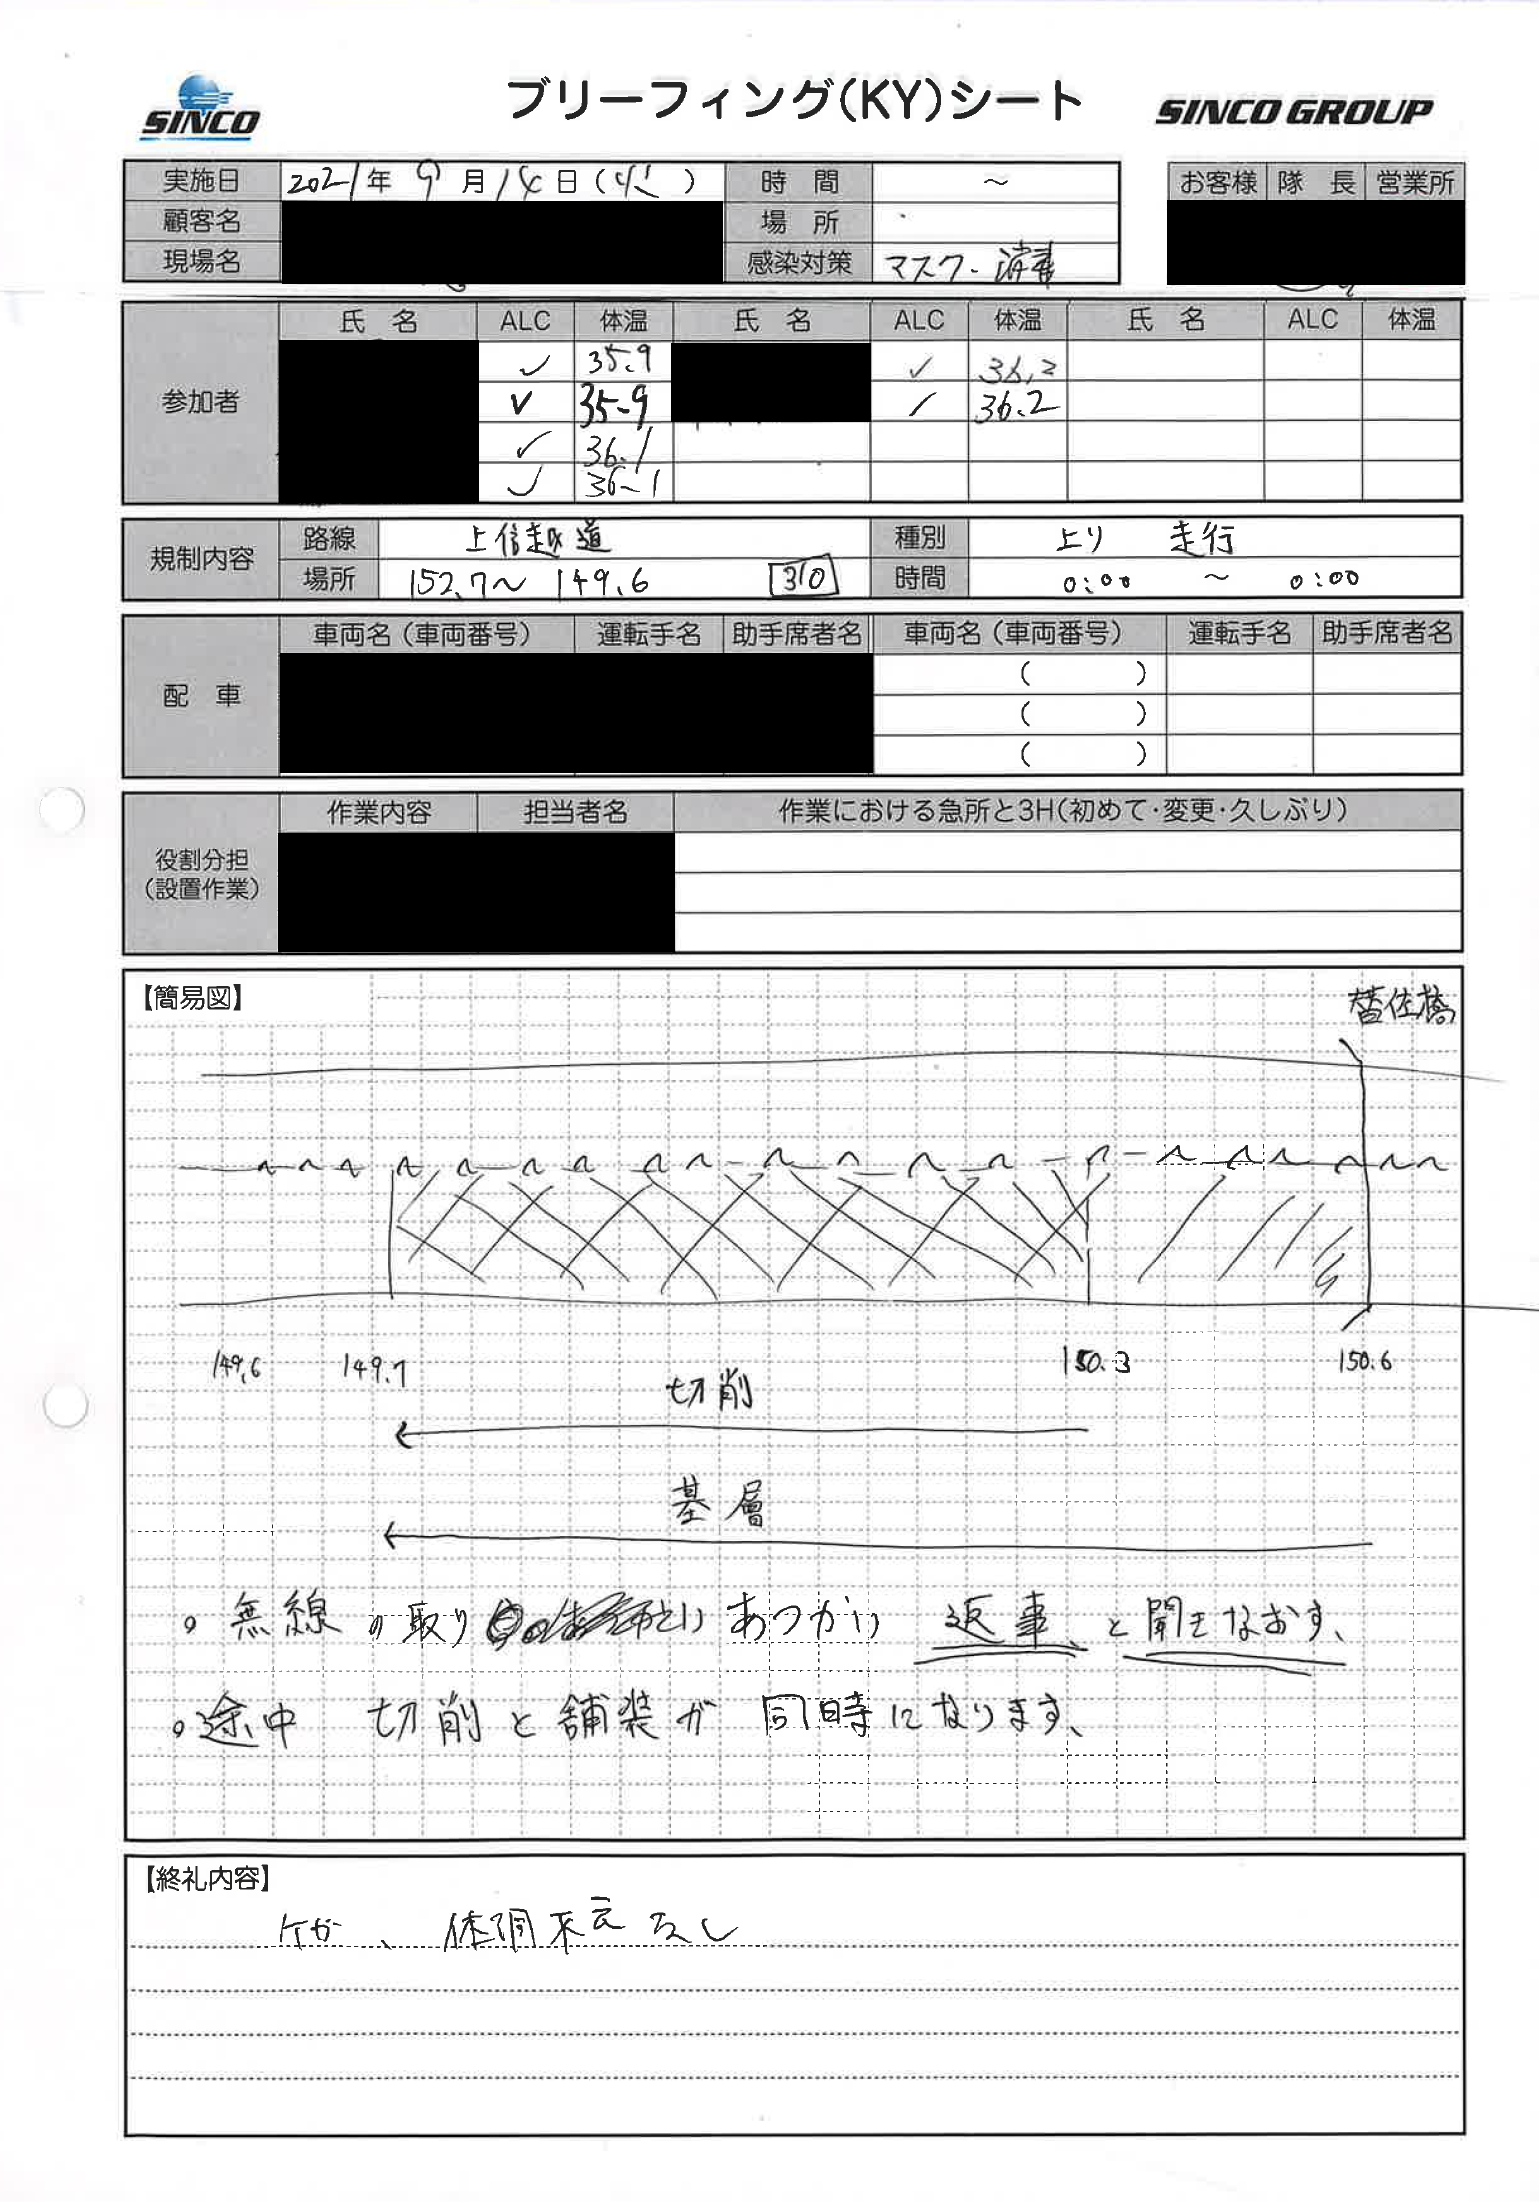 SINCO
ブリーフィング(KY)シート
SINCO GROUP
実施日 2021年 9月 14日 (火) 時 間 ～
顧客名 場 所
現場名 感染対策 マスク・消毒
お客様 隊 長 営業所
参加者
氏 名 ALC 体温 氏 名 ALC 体温 氏 名 ALC 体温
✓ 35.9 ✓ 36.2
✓ 35.9 ✓ 36.2
✓ 36.1
✓ 36.1
規制内容
路線 上信越道 種別 上り 走行
場所 152.7～149.6 310 時間 0:00 ～ 0:00
配 車
車両名(車両番号) 運転手名 助手席者名 車両名(車両番号) 運転手名 助手席者名
( )
( )
( )
役割分担
(設置作業)
作業内容 担当者名 作業における急所と3H(初めて・変更・久しぶり)
【簡易図】
替佐橋
149.6 149.7 150.3 150.6
切削
基層
。無線の取り あつかい 返事、と聞きなおす、
。途中 切削と舗装が 同時になります、
【終礼内容】
ケガ、体調不良なし